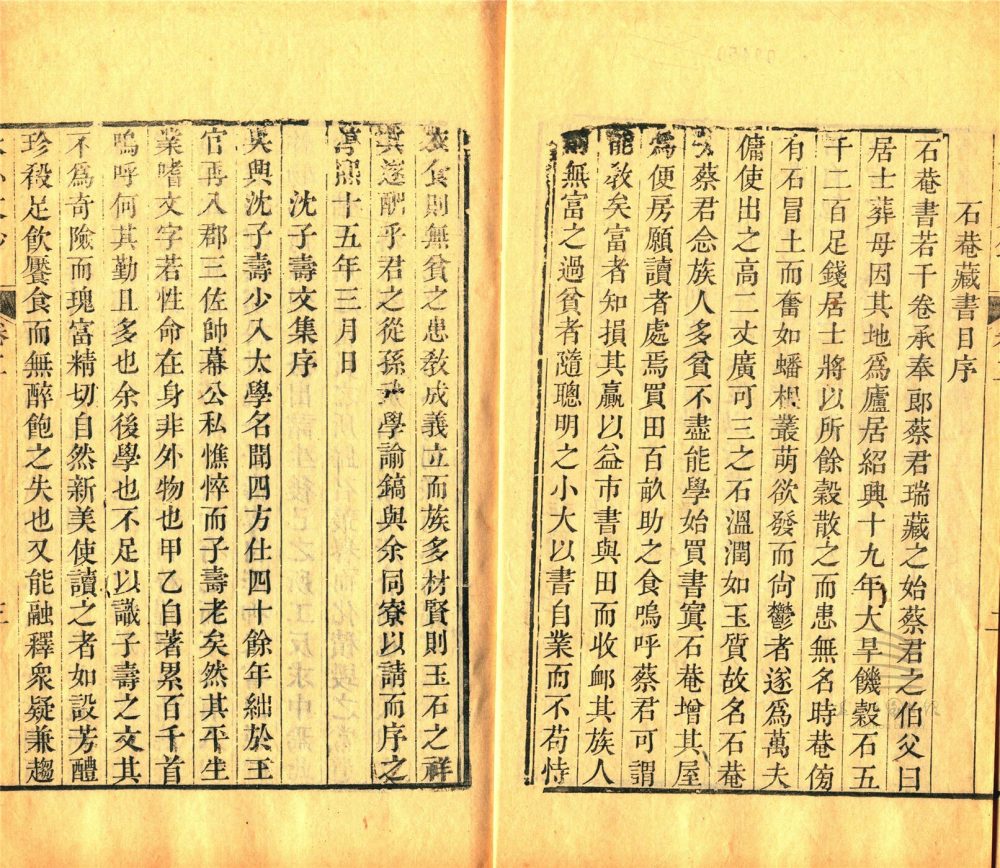 石菴藏書目序
石菴書若干卷承奉郎蔡君瑞藏之始蔡君之伯父曰
居士葬母因其地爲廬居紹興十九年大旱饑穀石五
千二百足錢居士將以所餘穀散之而患無名時菴傍
有石冒土而奮如蟠根叢萌欲發而尙鬱者遂爲萬夫
傭使出之高二丈廣可三之石溫潤如玉質故名石菴
蔡君念族人多貧不盡能學始買書寘石菴增其屋
爲便房願讀者處焉買田百畝助之食嗚呼蔡君可謂
能敎矣富者知損其贏以益市書與田而收卹其族人
則無富之過貧者隨聰明之小大以書自業而不苟恃
衣食則無貧之患敎成義立而族多材賢則玉石之祥
其遂酬乎君之從孫武學諭鎬與余同寮以請而序之
淳熙十五年三月日
沈子壽文集序
吳興沈子壽少入太學名聞四方仕四十餘年絀於王
官再入郡三佐帥幕公私憔悴而子壽老矣然其平生
業嗜文字若性命在身非外物也甲乙自著累百千首
嗚呼何其勤且多也余後學也不足以識子壽之文其
不爲奇險而瑰富精切自然新美使讀之者如設芳醴
珍殽足飮饜食而無醉飽之失也又能融釋衆疑兼趨